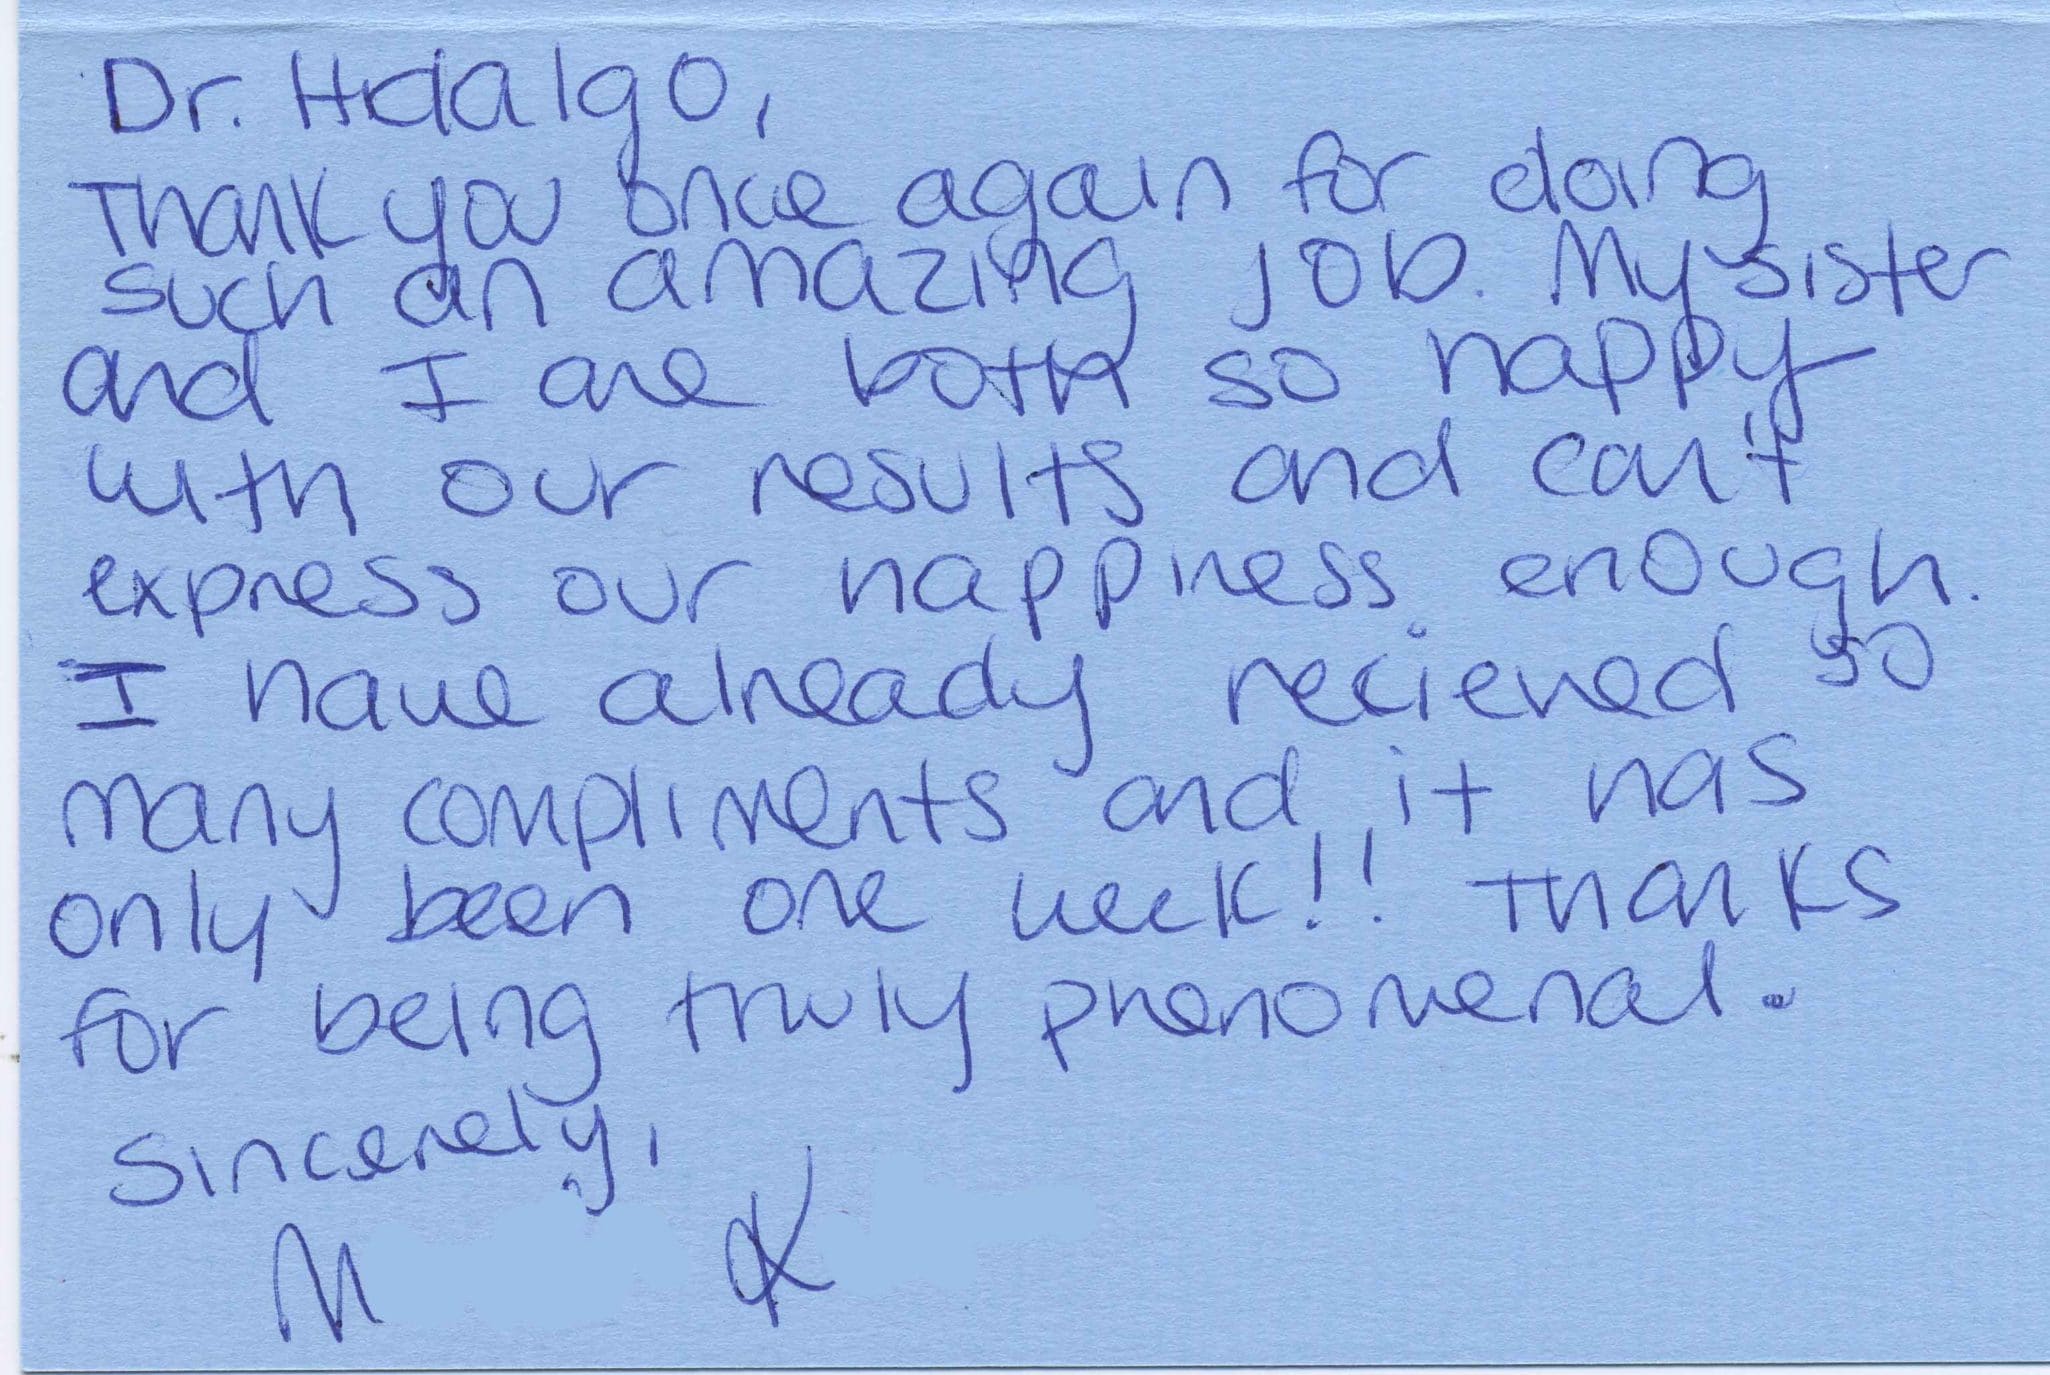 Dr. Hidalgo,
Thank you once again for doing
such an amazing job. My sister
and I are both so happy
with our results and can't
express our happiness enough.
I have already recieved so
many compliments and it has
only been one week!! Thanks
for being truly phenomenal.
Sincerely,
M K